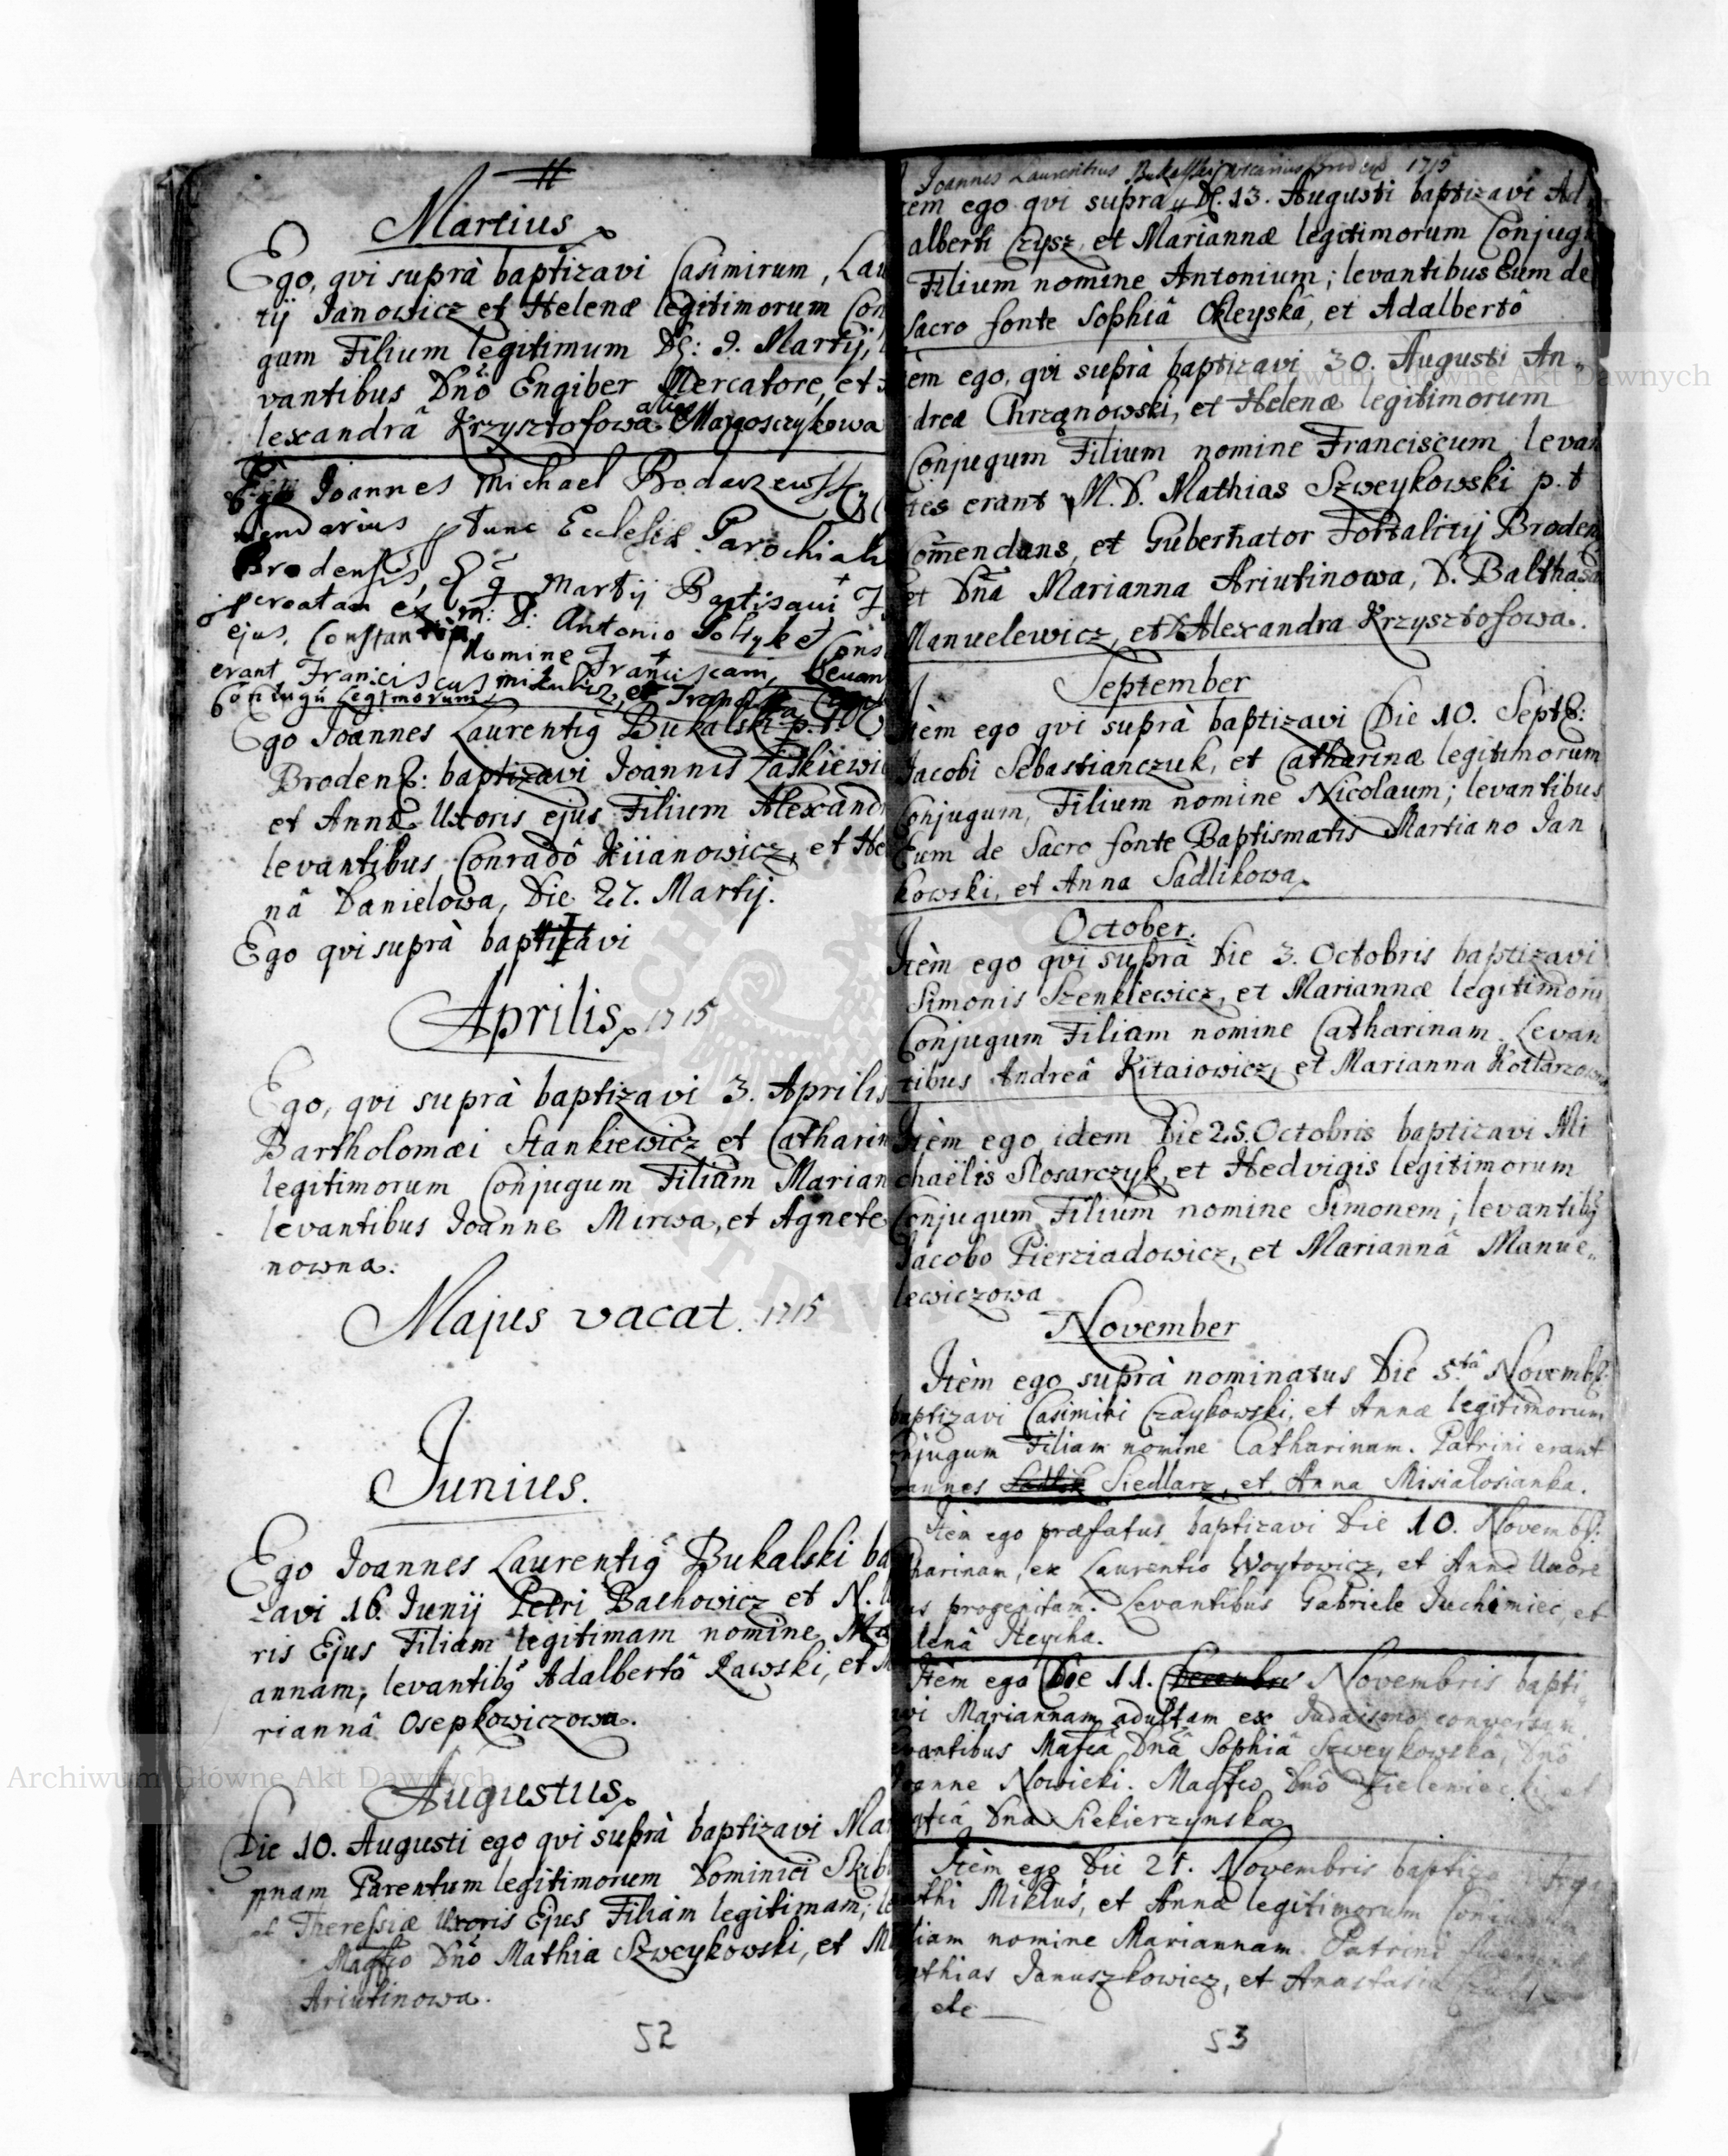 Martius
Ego, qvi suprà baptizavi Casimirum, Lau
tij Janowicz et Helenæ legitimorum Con
gum Filium legitimum D: 9. Martij,
vantibus Dnō Engiber Mercatore, et
lexandrâ Krzysztofowa alias Margosczykowa
Ego Joannes Michael Brodaszewsky
mendarius p tunc Ecclesiæ Parochial
Brodensis, 9 Martij Baptisavi
pcreatam ex M: D: Antonio Soltyk et Cons
ejus, Constantia Nomine Franciscam, Levan
erant Franciscus
Coniugū Legimorum
Ego Joannes Laurentiȝ Bukalski p. t.
Brodens: baptizavi Joannis Laskiewi
et Annæ Uxoris ejus Filium Alexand
levantibus Conradô Kiianowicz, et He
nâ Danielowa, Die 27. Martij.
Ego qvi suprà baptizavi
Aprilis 1715
Ego, qvi suprà baptizavi 3. Aprilis
Bartholomæi Stankiewicz et Catharin
legitimorum Conjugum Filium Marian
levantibus Joanne Mirwa, et Agnete
nowna.
Majus vacat. 1715
Junius.
Ego Joannes Laurentiȝ Bukalski ba
zavi 16. Junij Petri Bachowicz et N. U
ris Ejus Filiam legitimam nomine Ma
annam, levantibȝ Adalbertô Rawski, et M
riannâ Osepkowiczowa.
Augustus
Die 10. Augusti ego qvi suprà baptizavi Mar
nnam Parentum legitimorum Dominici Skib
et Theressiæ Uxoris Ejus Filiam legitimam; le
Magfco Dnō Mathia Szweykowski, et M
Ariutinowa.
52
Joannes Laurentius Bukalski Vicarius Brodens 1715
em ego qvi supra D. 13. Augusti baptizavi Ad
alberti Czysz, et Mariannæ legitimorum Conjugu
Filium nomine Antonium; levantibus Eum de
Sacro fonte Sophiâ Okleyskâ, et Adalbertô
èm ego, qvi suprà baptizavi 30. Augusti An
dreæ Chrzanowski, et Helenæ legitimorum
Conjugum Filium nomine Franciscum, levan
tes erant M. D. Mathias Szweykowski p. t
Com̄endans, et Gubernator Fortalitij Broden
et Dnā Marianna Ariutinowa, D. Balthasa
Manuelewicz, et Alexandra Krzysztofowa.
September
Itèm ego qvi suprà baptizavi Die 10. Septb:
Jacobi Sebastianczuk, et Catharinæ legitimorum
Conjugum, Filium nomine Nicolaum; levantibus
Eum de Sacro fonte Baptismatis Martiano Jan
kowski, et Anna Sadlikowa.
October.
Itèm ego qvi suprà Die 3. Octobris baptizavi
Simonis Szenkiewicz, et Mariannæ legitimorū
Conjugum Filiam nomine Catharinam. Levan
tibus Andreâ Kitaiowicz, et Marianna Kotlarzowa
Itèm ego idem Die 25. Octobris baptizavi Mi
chaëlis Slosarczyk, et Hedvigis legitimorum
Conjugum Filium nomine Simonem; levantibȝ
Jacobo Pierziadowicz, et Mariannâ Manue
lewiczowa
November
Itèm ego suprà nominatus Die 5.tâ Novembr.
baptizavi Casimiri Czaykowski, et Annæ legitimorum
onjugum Filiam nomine Catharinam. Patrini erant
oannes Siedlarz, et Anna Misialosianka.
Itèm ego præfatus baptizavi Die 10. Novembr:
tharinam, ex Laurentio Woytowicz, et Anna Uxore
us progenitam. Levantibus Gabriele Juchimiec, et
lenâ Heycha.
Itèm ego Die 11. Decembris Novembris bapti
avi Mariannam adultam ex Judaismo conversam
evantibus Magfcâ Dnâ Sophiâ Szweykowskâ, Dnō
Joanne Nowicki. Magfco Dnō Zieleniecki et
gfcâ Dna Siekierzynska
Itèm ego Die 21. Novembris baptiza
athi Miklus, et Annæ legitimorum Conjugum
liam nomine Mariannam. Patrini fuerunt
athias Januszkowicz, et Anastasia
etc
53
Archiwum Główne Akt Dawnych
Archiwum Główne Akt Dawnych